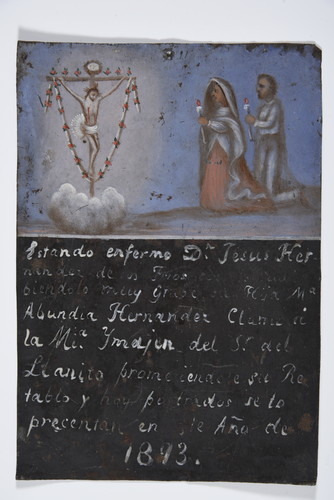 Estando enfermo Dn. Jesus Her-
nandez de los Frios
biendolo muy Grave su Esja Ma.
Abundia Hernandez Clamó á
la Mia. Ymajen del Sr. del
Llanito prometiendole su Re-
tablo y hoy postrados se lo
precentan en este Año de
1893.